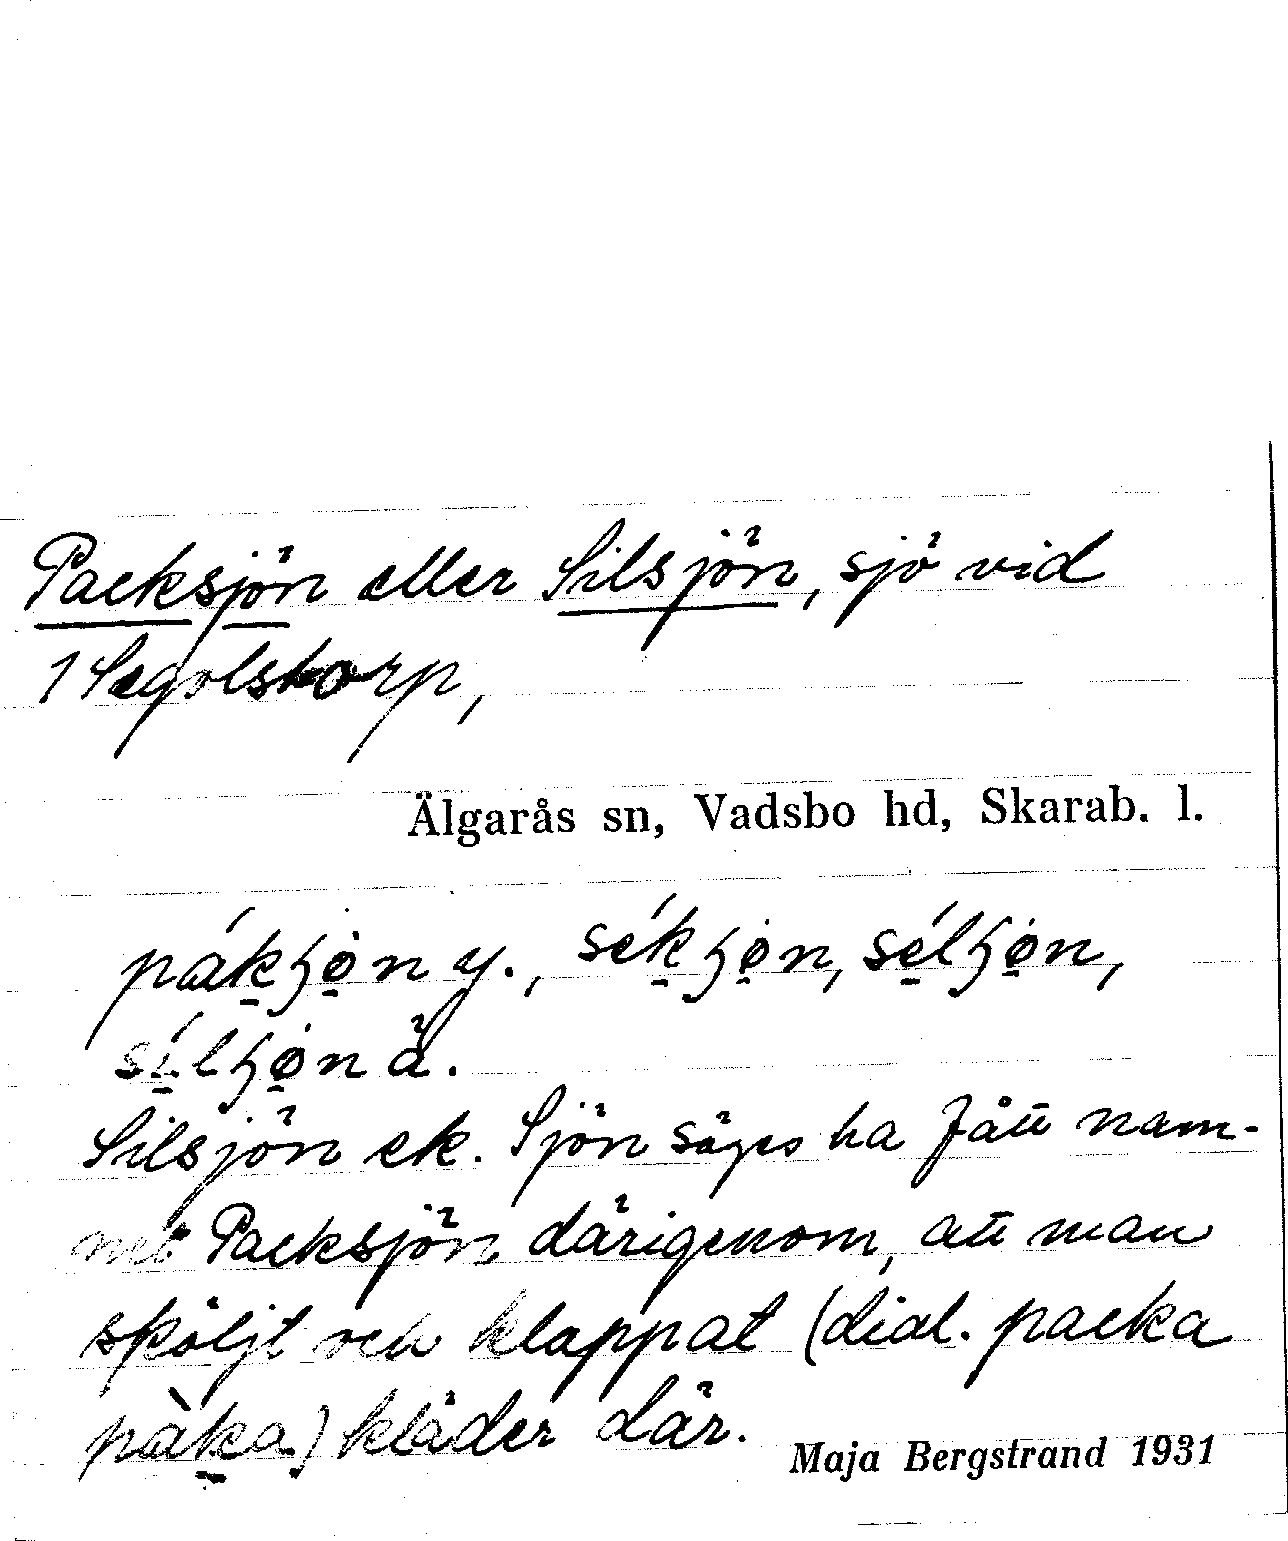 Packsjön eller Silsjön, sjö vid
1 Segolstorp,
Älgarås sn, Vadsbo hd, Skarab. l.
pákɧø̀n y., sékɧøn, sélɧøn,
sílɧøn ä.
Silsjön ek. Sjön säges ha fått nam-
net Packsjön därigenom, att man
sköljt och klappat (dial. packa
pàka) kläder där.
Maja Bergstrand 1931